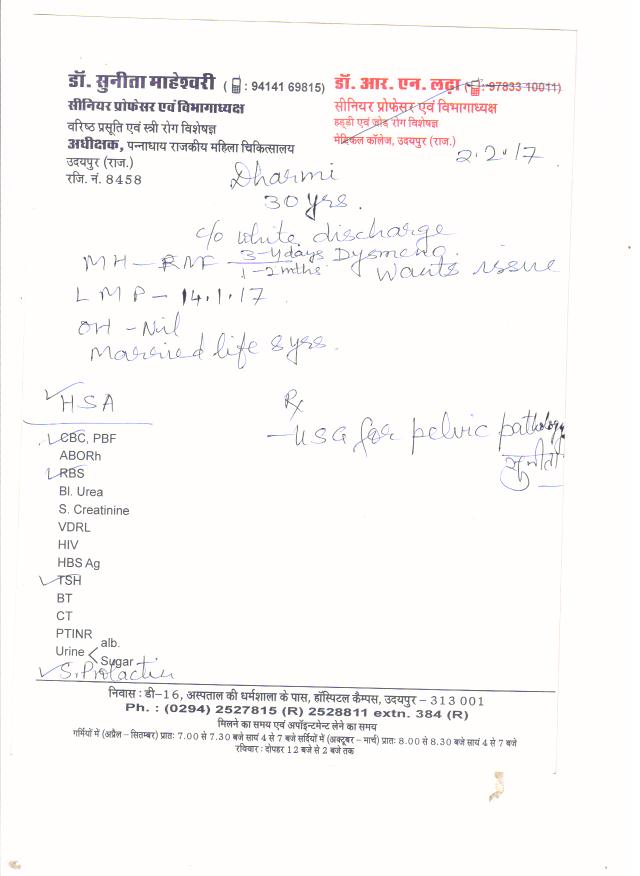 डॉ. सुनीता माहेश्वरी (📱: 94141 69815)
सीनियर प्रोफेसर एवं विभागाध्यक्ष
वरिष्ठ प्रसूति एवं स्त्री रोग विशेषज्ञ
अधीक्षक, पन्नाधाय राजकीय महिला चिकित्सालय
उदयपुर (राज.)
रजि. नं. 8458
डॉ. आर. एन. लढ़ा (📱: 97833 10011)
सीनियर प्रोफेसर एवं विभागाध्यक्ष
हड्डी एवं जोड़ रोग विशेषज्ञ
मेडिकल कॉलेज, उदयपुर (राज.)
2.2.17
Dharmi
30 yrs.
c/o white discharge
MH - RMF 3-4 days / 1-2 mths Dysmeno. wants issue
LMP - 14.1.17
OH - Nil
Married life 8 yrs.
HSA
CBC, PBF
ABORh
RBS
Bl. Urea
S. Creatinine
VDRL
HIV
HBS Ag
TSH
BT
CT
PTINR
Urine < alb.
Sugar
S. Prolactin
Rx
- USG for pelvic pathology
सुनीता
निवास : डी-16, अस्पताल की धर्मशाला के पास, हॉस्पिटल कैम्पस, उदयपुर - 313 001
Ph. : (0294) 2527815 (R) 2528811 extn. 384 (R)
मिलने का समय एवं अपॉइन्टमेन्ट लेने का समय
गर्मियों में (अप्रैल - सितम्बर) प्रातः 7.00 से 7.30 बजे सायं 4 से 7 बजे सर्दियों में (अक्टूबर - मार्च) प्रातः 8.00 से 8.30 बजे सायं 4 से 7 बजे
रविवार : दोपहर 12 बजे से 2 बजे तक